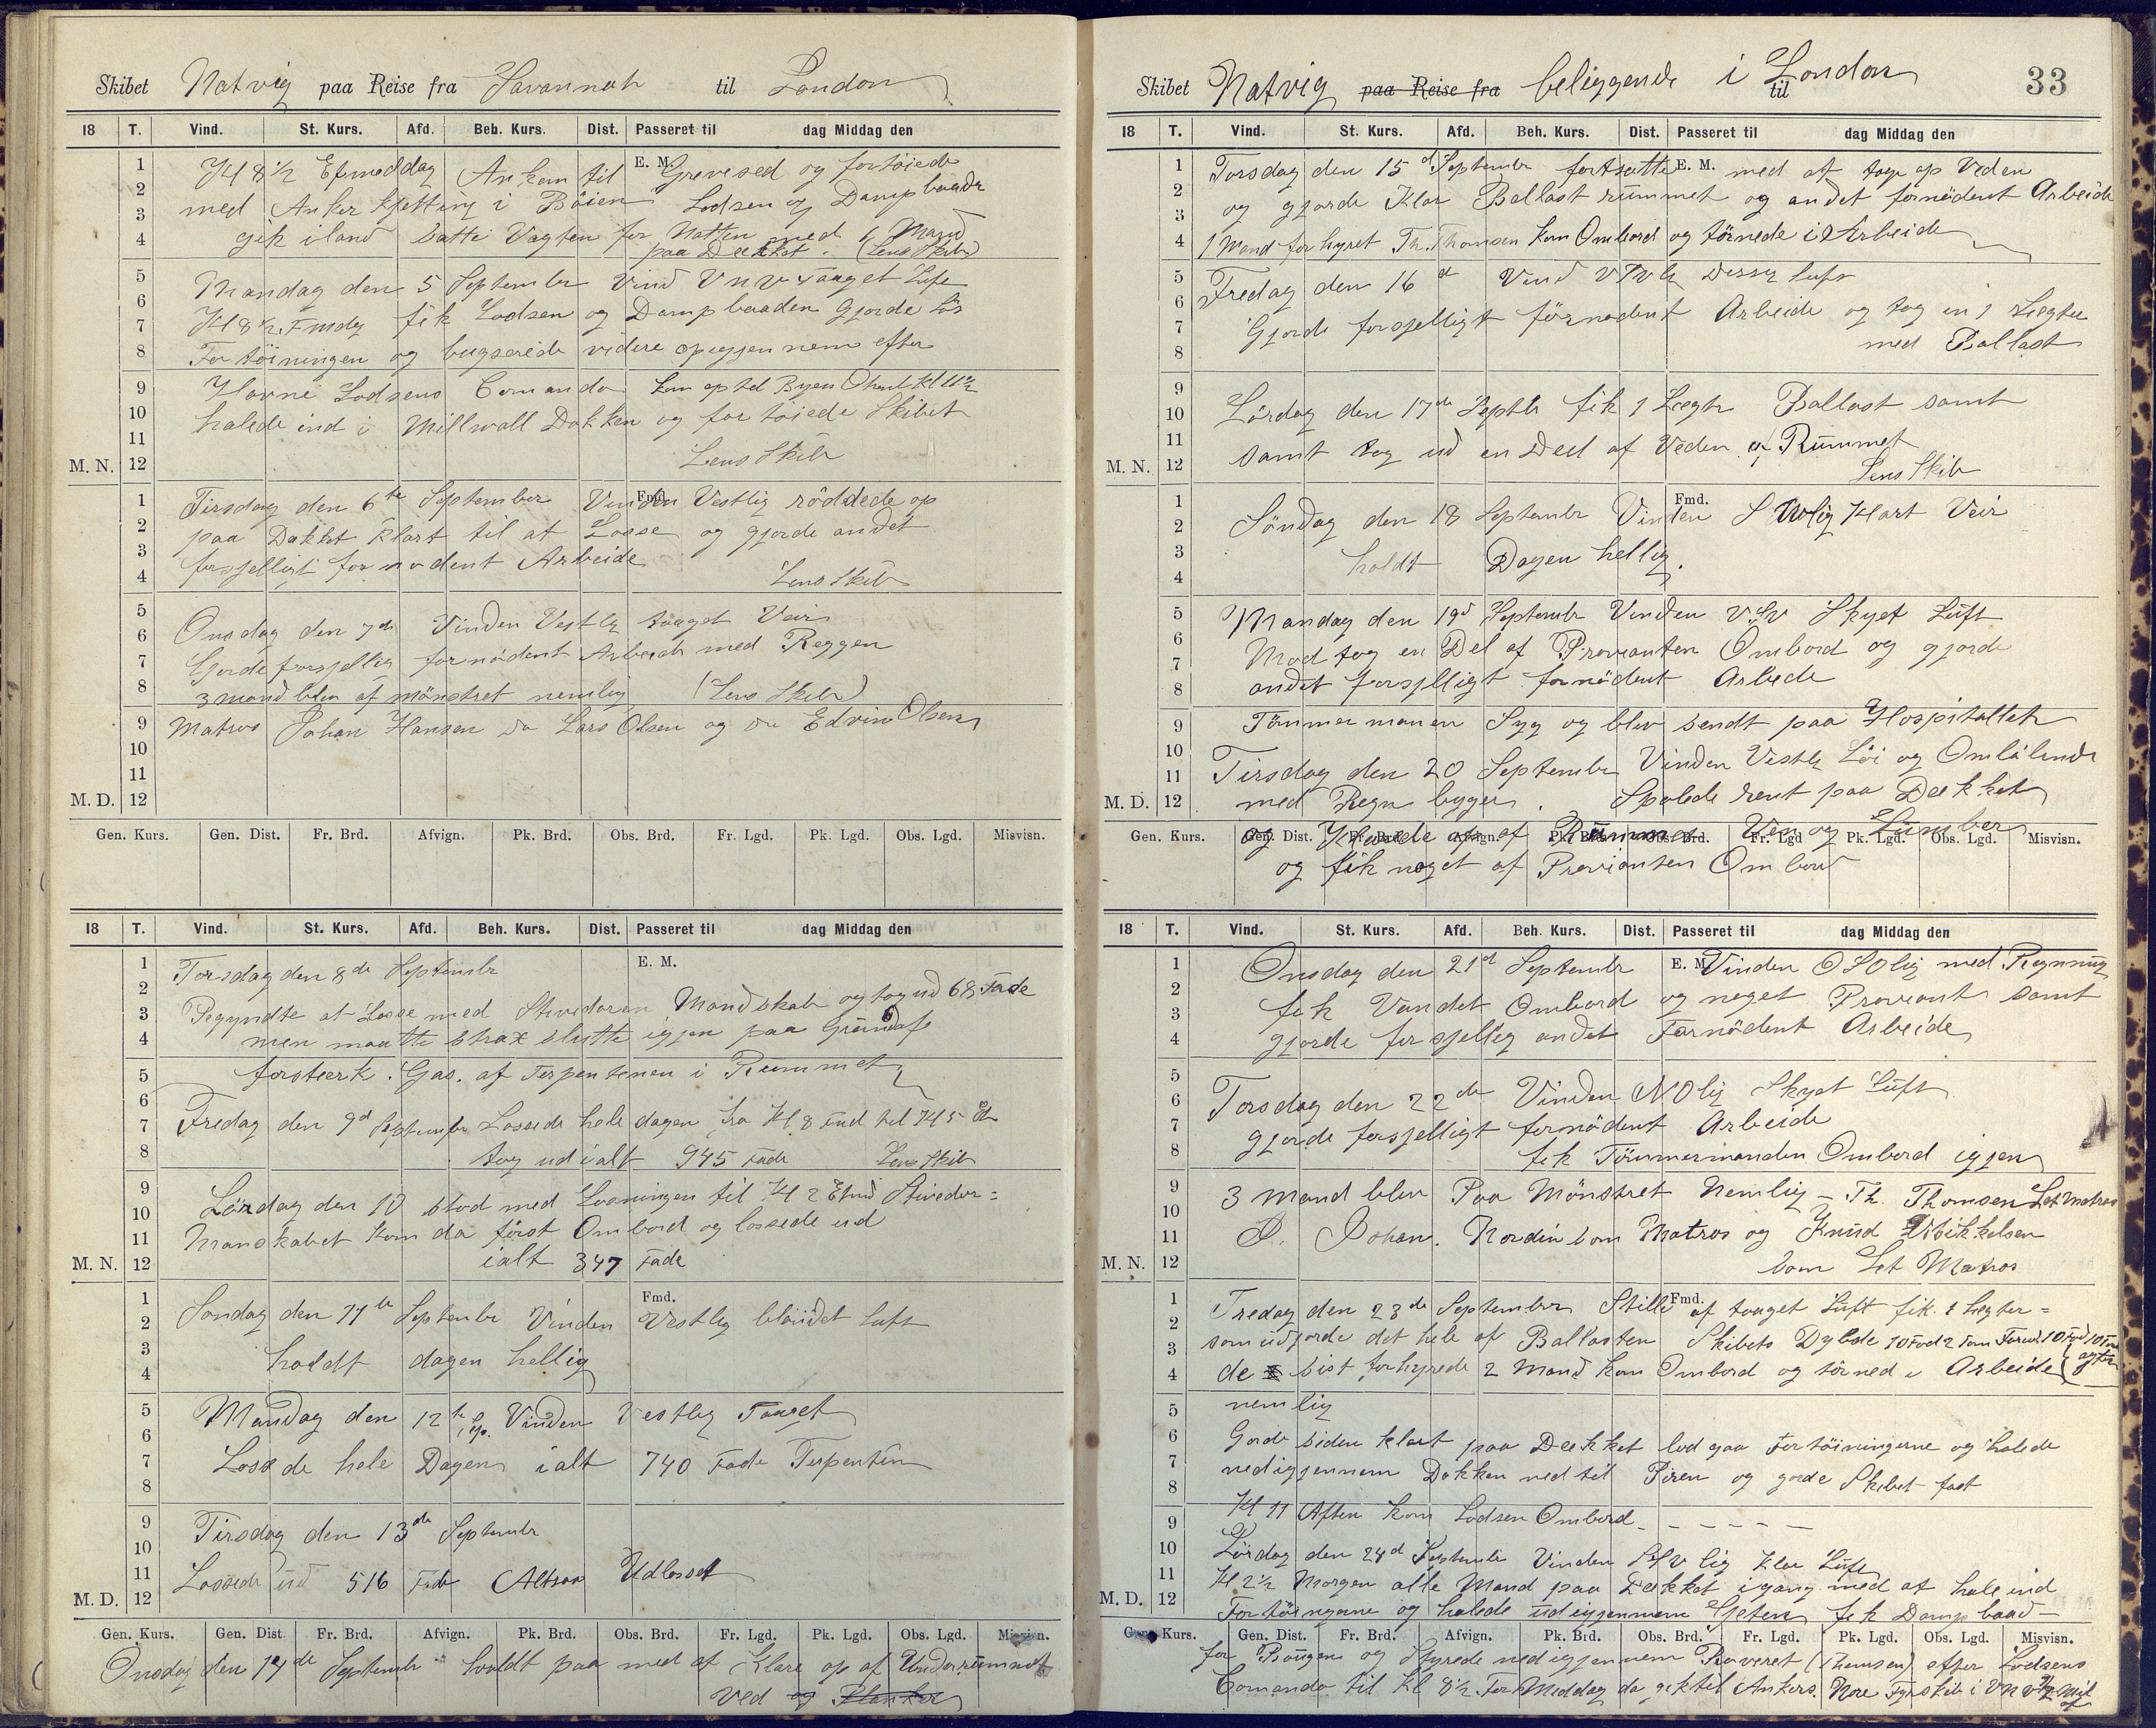 Skibet Natvig paa Reise fra Savannah til London
18 T. Vind. St. Kurs. Afd. Beh. Kurs. Dist. Passeret til dag Middag den
E. M.
1 2 3 4 5 6 7 8 9 10 11 12
M. N.
Kl 8 1/2 Eftmeddag Ankom til Grevesed og fortöiede
med Anker kjetting i Böien Lodsen og Dampbaade
gik iland satte Vagten for Natten med 1 Mand
paa Dækket. (Lens Skib)
Mandag den 5 September Vind VNV taaget Luft
Kl 8 1/2 Fmdg fik Lodsen og Dampbaaden gjorde Lös
Fortöiningen og bugserede videre opigjennem efter
Havne Lodsens Comando kom op til Byen Kl 11 1/2
halede ind i Millwall Dokken og fortöiede Skibet
Lens Skib
Fmd.
1 2 3 4 5 6 7 8 9 10 11 12
M. D.
Tirsdag den 6te September Vinden Vestlig röddede op
paa Dækket klart til at Losse og gjorde andet
forsjelligt fornödent Arbeide
Lens Skib
Onsdag den 7de Vinden Vestlig taaget Veir
Gjorde forsjellig fornödent Arbeide med Reggen
3 mand blev afmönstret nemlig (Lens Skib)
Matros Johan Hansen Do Lars Olsen og Do Edvin Olsen
Gen. Kurs. Gen. Dist. Fr. Brd. Afvign. Pk. Brd. Obs. Brd. Fr. Lgd. Pk. Lgd. Obs. Lgd. Misvisn.
18 T. Vind. St. Kurs. Afd. Beh. Kurs. Dist. Passeret til dag Middag den
E. M.
1 2 3 4 5 6 7 8 9 10 11 12
M. N.
Torsdag den 8de Septembr
Begyndte at Losse med Stvedoren Mandskab og tog ud 68 Fade
men maatte strax slutte igjen paa Grund af
forstærk Gas. af Terpentenen i Rummet
Fredag den 9d September Lossede hele dagen fra Kl 8 Fmd til Kl 5 Em
tog ud ialt 945 Fade Lens Skib
Lördag den 10 stod med Losningen til Kl 2 Efmd Stivedor=
Manskabet kom da först Ombord og lossede ud
ialt 347 Fade
Fmd.
1 2 3 4 5 6 7 8 9 10 11 12
M. D.
Söndag den 11te Septembr Vinden Vestlig blöndet Luft
holdt dagen hellig
Mandag den 12te Sep. Vinden Vestlig Taaget
Lossede hele Dagen ialt 740 Fade Terpentin
Tirsdag den 13de Septembr
Lossede ud 516 Fade Altsaa Udlosset
Gen. Kurs. Gen. Dist. Fr. Brd. Afvign. Pk. Brd. Obs. Brd. Fr. Lgd. Pk. Lgd. Obs. Lgd. Misvisn.
Onsdag den 14de Septembr holdt paa med at Klare op af Underrummet
Ved og Planker
Skibet Natvig paa Reise fra beliggende i London til
33
18 T. Vind. St. Kurs. Afd. Beh. Kurs. Dist. Passeret til dag Middag den
E. M.
1 2 3 4 5 6 7 8 9 10 11 12
M. N.
Torsdag den 15d Septembr fortsatte med at tage op Veden
og gjorde Klar Ballast rummet og andet fornödent Arbeide
1 Mand forhyret Th. Thomsen kom Ombord og törnede i Arbeide
Fredag den 16d Vind Dessig Luft
Gjorde forsjelligt förnodent Arbeide og tog in 1 Lægter
med Ballast
Lördag den 17de Septbr fik 1 Lægter Ballast samt
samt tog ud en Deel af Veden af Rummet
Lens Skib
Fmd.
1 2 3 4 5 6 7 8 9 10 11 12
M. D.
Söndag den 18 Septembr Vinden Klart Veir
holdt Dagen hellig.
Mandag den 19d Septembr Vinden VSV Skyet Luft
Modtog en Del af Provianten Ombord og gjorde
andet forsjelligt fornödent Arbeide
Tömmermanen Syg og blev sendt paa Hospitallet
Tirsdag den 20 September Vinden Vestlg Löi og Omlölende
med Regn byger. Spolede rent paa Dækket
og Klarede op af Rummet Ven og Lumber
og fik noget af Provianten Ombord
Gen. Kurs. Gen. Dist. Fr. Brd. Afvign. Pk. Brd. Obs. Brd. Fr. Lgd Pk. Lgd. Obs. Lgd. Misvisn.
18 T. Vind. St. Kurs. Afd. Beh. Kurs. Dist. Passeret til dag Middag den
E. M.
1 2 3 4 5 6 7 8 9 10 11 12
M. N.
Onsdag den 21d Septembr Vinden OSOlig med Regning
fik Vandet Ombord og noget Proviant samt
gjorde forsjellig andet Fornödent Arbeide
Torsdag den 22de Vinden NOlig Skyet Luft
gjorde forsjelligt fornödent Arbeide
fik Tömmermanden Ombord igjen
3 Mand blev Paa Mönstret Nemlig - Th. Thomsen Let Matros
O. Johan. Nordin som Matros og Knud Mikkelsen
som Let Matros
Fmd.
1 2 3 4 5 6 7 8 9 10 11 12
M. D.
Fredag den 23de September Stille af taaget Luft fik 1 Lægter=
som udgjorde det hele af Ballasten Skibets Dybde 10 Fod 2 Tom Forud 10 Fod 10 Tom
agter
de sist forhyrede 2 Mand kom Ombord og törned i Arbeide
nemlig
Gorde siden klart paa Dækket lod gaa Fortöiningerne og halede
nedigjennem Dokken ned til Piren og gorde Skibet fast
Kl 11 Aften kom Lodsen Ombord - - - - - -
Lördag den 24d Septembr Vinden SSV lig Klar Luft
Kl 2 1/2 Morgen alle Mand paa Dækket igang med at hale ind
Fortöiningerne og halede ud igjennem Gjeten fik Dampbaad -
Gen. Kurs. Gen. Dist. Fr. Brd. Afvign. Pk. Brd. Obs. Brd. Fr. Lgd. Pk. Lgd. Obs. Lgd. Misvisn.
for Bougen og Styrede nedigjennem Reveret (Themsen) efter Lodsens
Comando til Kl 8 1/2 ForMiddag da gik til Ankers. Nore Fyrskib i VNV 1/2 Mil
af